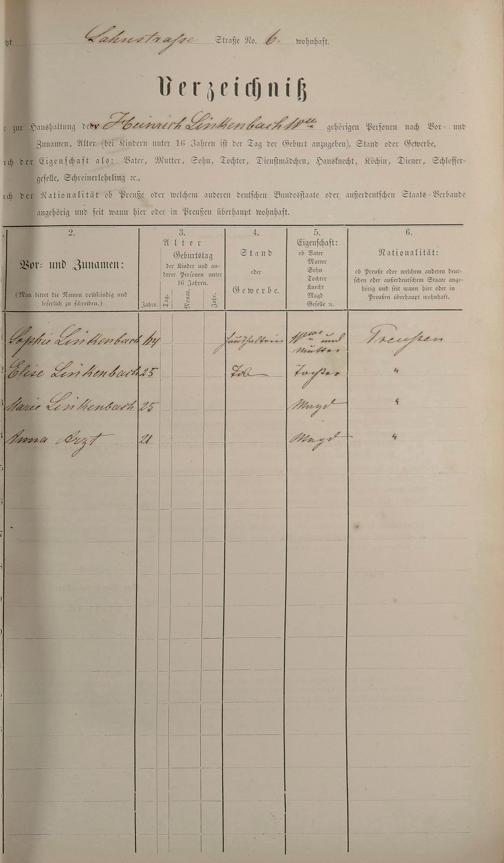 Lahnstraße Straße No. 6. wohnhaft.
Verzeichniß
zur Haushaltung der Heinrich Linkenbach Wwe gehörigen Personen nach Vor- und
Zunamen, Alter (bei Kindern unter 16 Jahren ist der Tag der Geburt anzugeben), Stand oder Gewerbe,
der Eigenschaft als: Vater, Mutter, Sohn, Tochter, Dienstmädchen, Hausknecht, Köchin, Diener, Schlosser-
geselle, Schreinerlehrling ꝛc.,
der Nationalität ob Preuße oder welchem anderen deutschen Bundesstaate oder außerdeutschen Staats-Verbande
angehörig und seit wann hier oder in Preußen überhaupt wohnhaft.
2.
Vor- und Zunamen:
(Man bittet die Namen vollständig und
leserlich zu schreiben.)
3.
Alter
Geburtstag
der Kinder und an-
derer Personen unter
16 Jahren.
Jahre.
Tag.
Monat.
Jahr.
4.
Stand
oder
Gewerbe.
5.
Eigenschaft:
ob Vater
Mutter
Sohn
Tochter
Knecht
Magd
Geselle ꝛc.
6.
Nationalität:
ob Preuße oder welchem anderen deut-
schen oder außerdeutschen Staate ange-
hörig und seit wann hier oder in
Preußen überhaupt wohnhaft.
Sophie Linkenbach 64 Wwe und Mutter Preußen
Elise Linkenbach 25 Tochter "
Marie Linkenbach 25 Magd "
Anna Arzt 21 Magd "